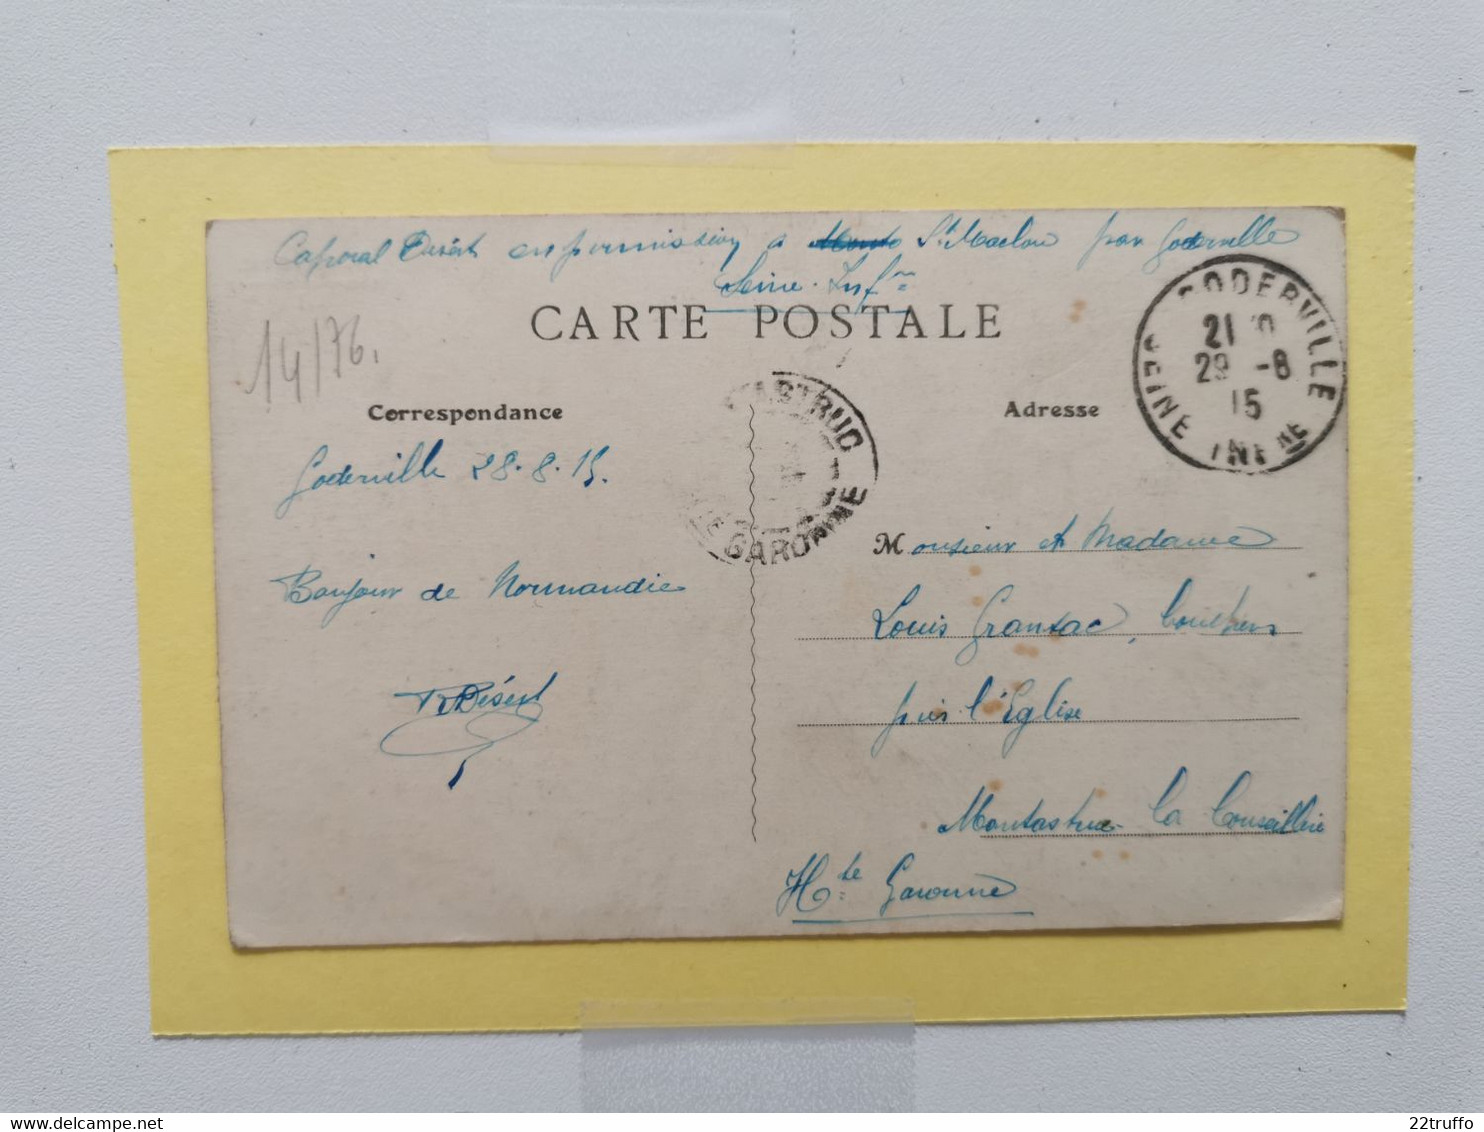 Caporal Désert en permission à St Maclou par Goderville
Seine-Infre
CARTE POSTALE
14/76.
Correspondance
Adresse
GODERVILLE
21
29 -8
15
SEINE INFRE
TASTRUC
TE GARONNE
Goderville 28.8.15.
Bonjour de Normandie
Désert
Monsieur et Madame
Louis Gransac,
près l'Eglise
Montastruc-la Conseillère
Hte Garonne
delcampe.net
22truffo